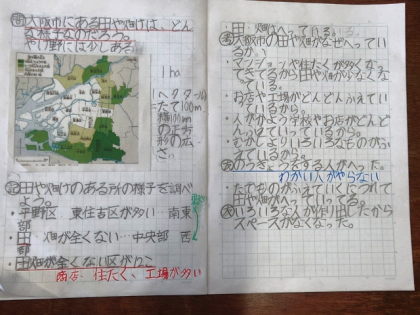 大阪市にある田や畑は、どん
な様子なのだろう。
や い野には少しある。
1ha
(ヘクタール)
=たて100m
横100m
の正方
形の広
さ。
田や畑のある所の様子を調べ
よう。
・平野区 東住吉区が多い…南東
部
・田 畑が全くない…中央部 西
部
・田畑が全くない区が12こ
商店、住たく、工場が多い
・田 畑はへっている。
大阪市の田や畑がなぜへってい
るか。
・マンションや住たくが多くな
ってきてるから田や畑が少なくな
っている。
・お店や工場がどんどんふえてい
っているから。
・人がかよう学校やお店がどんど
んふえていっているから。
・むかしよりいろいろなものがふ
えているから。
のうぎょうする人がへった。
わかい人がやらない
・たてものがふえていくにつれて
田や畑がへっていってる。
いろいろな人が作り出したから
スペースがなくなった。